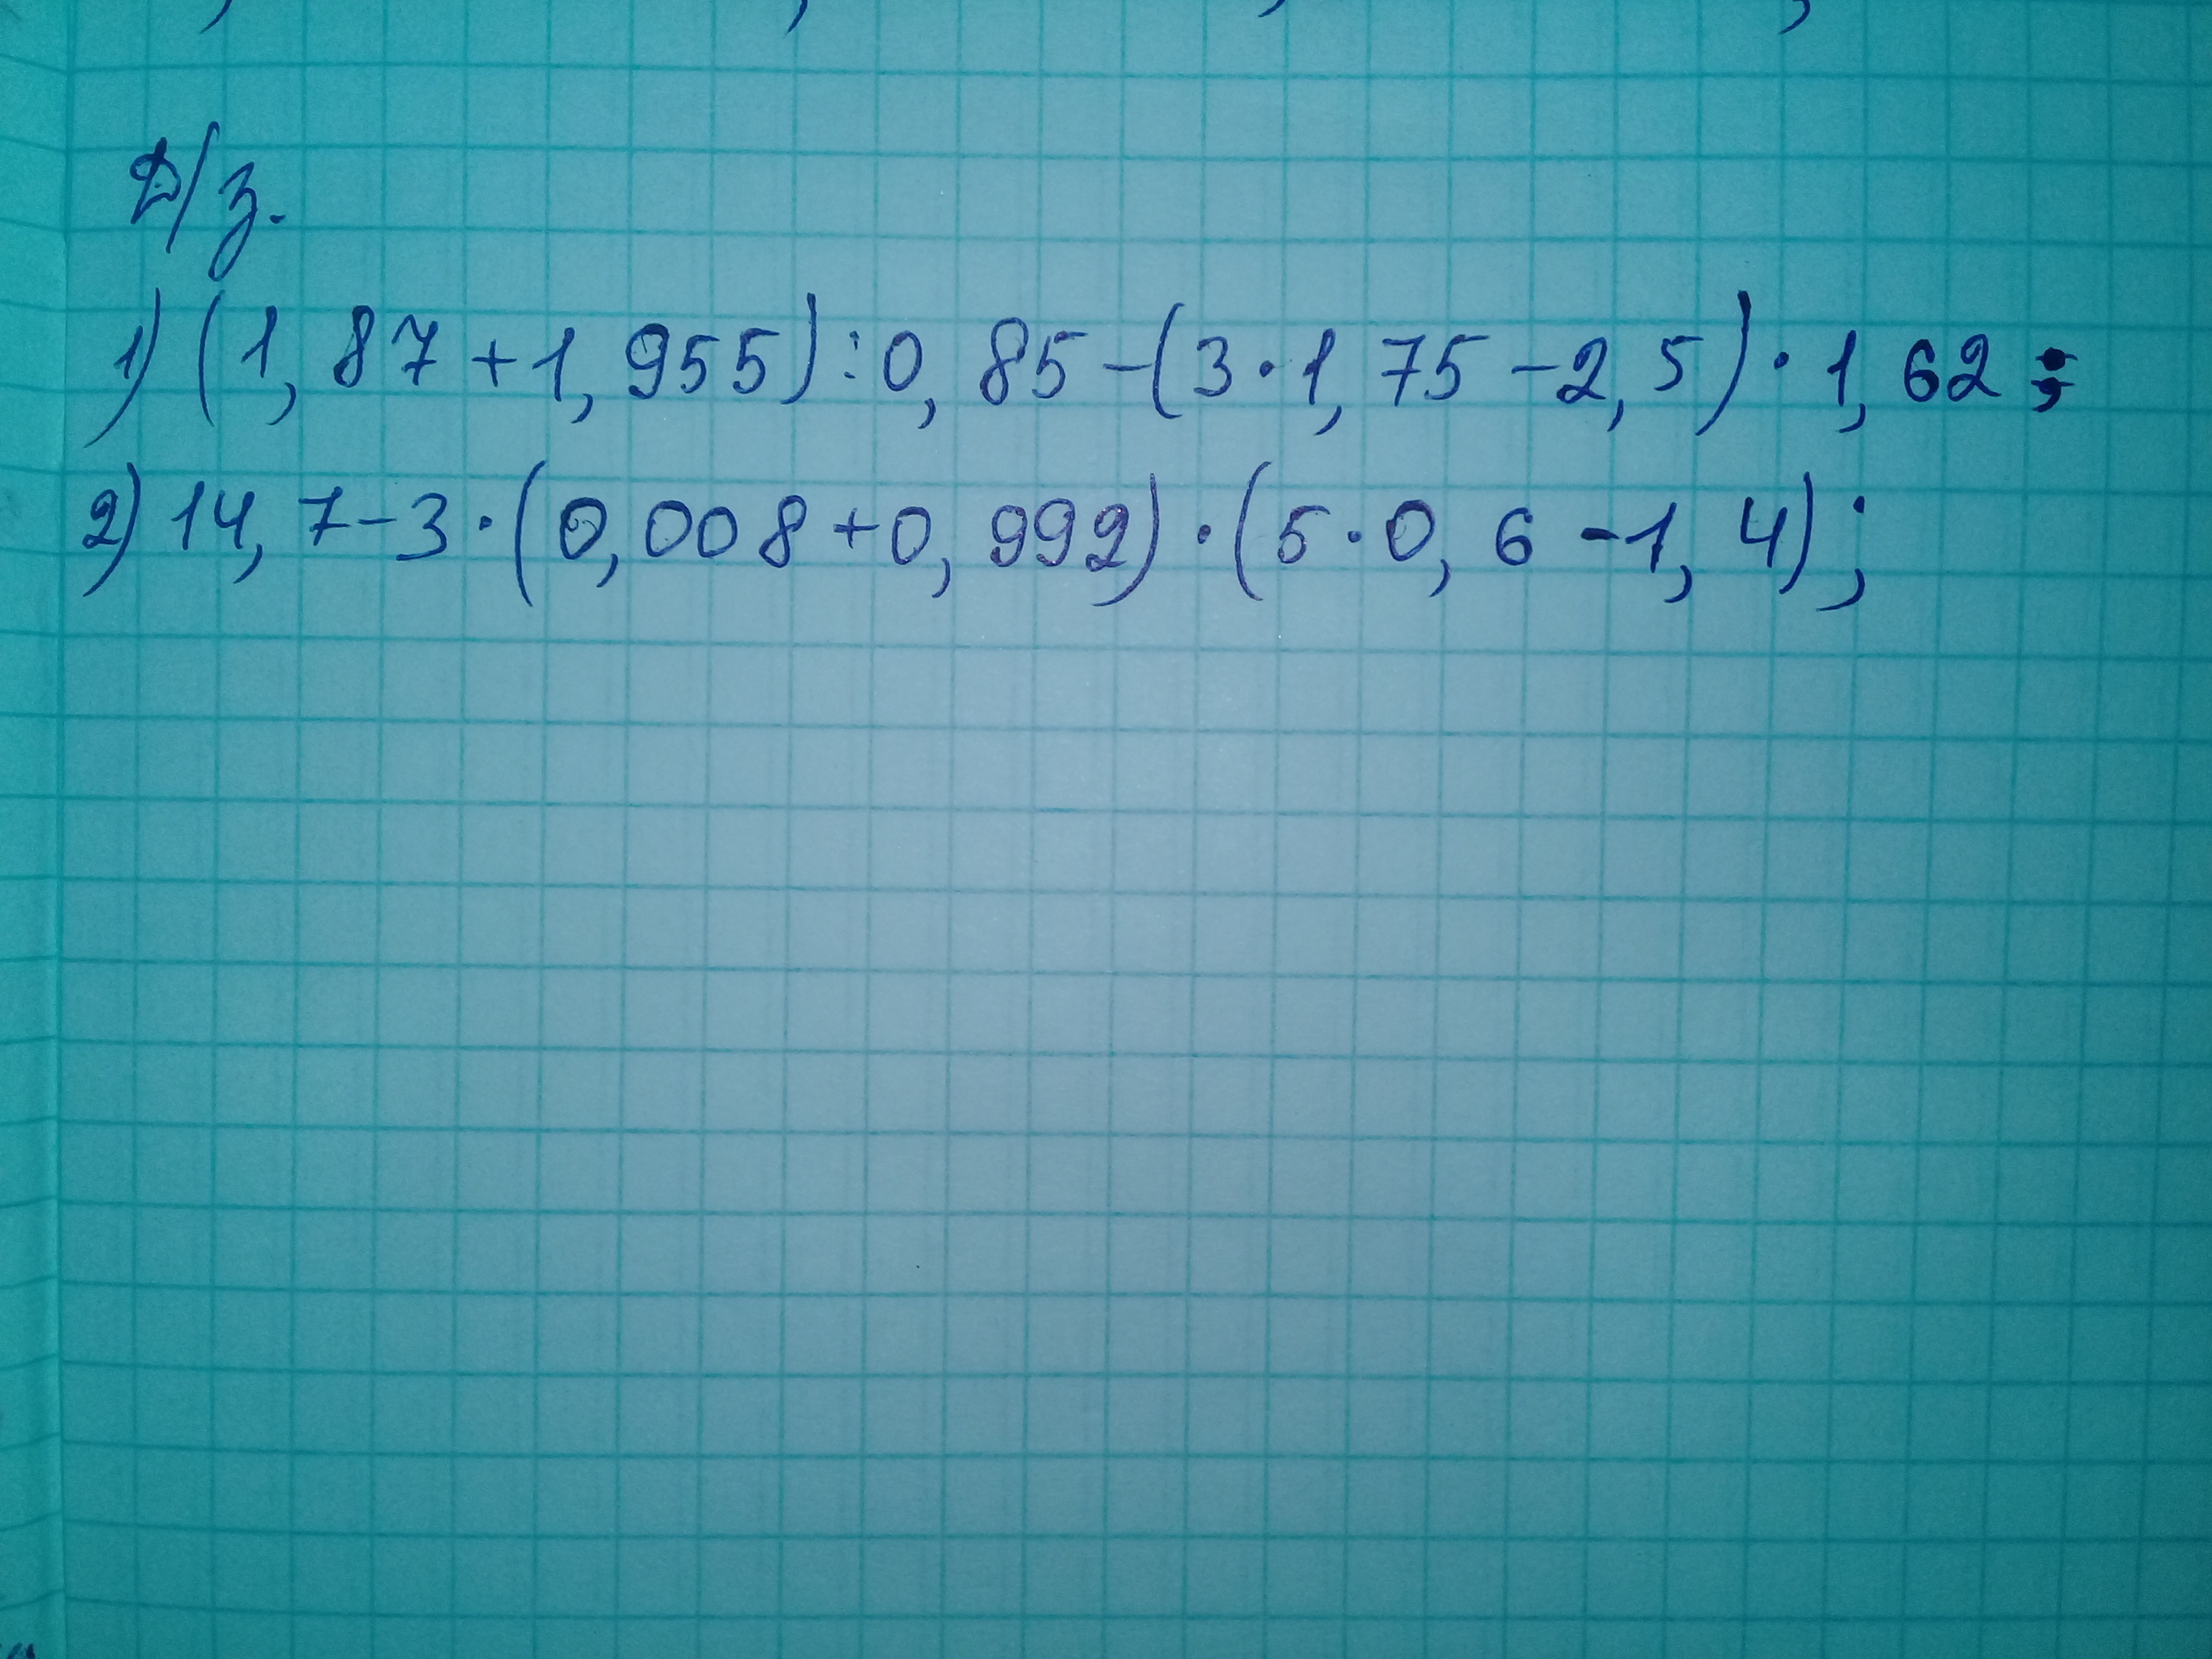 Д/з.
1) (1,87+1,955):0,85-(3·1,75-2,5)·1,62;
2) 14,7-3·(0,008+0,992)·(5·0,6-1,4);